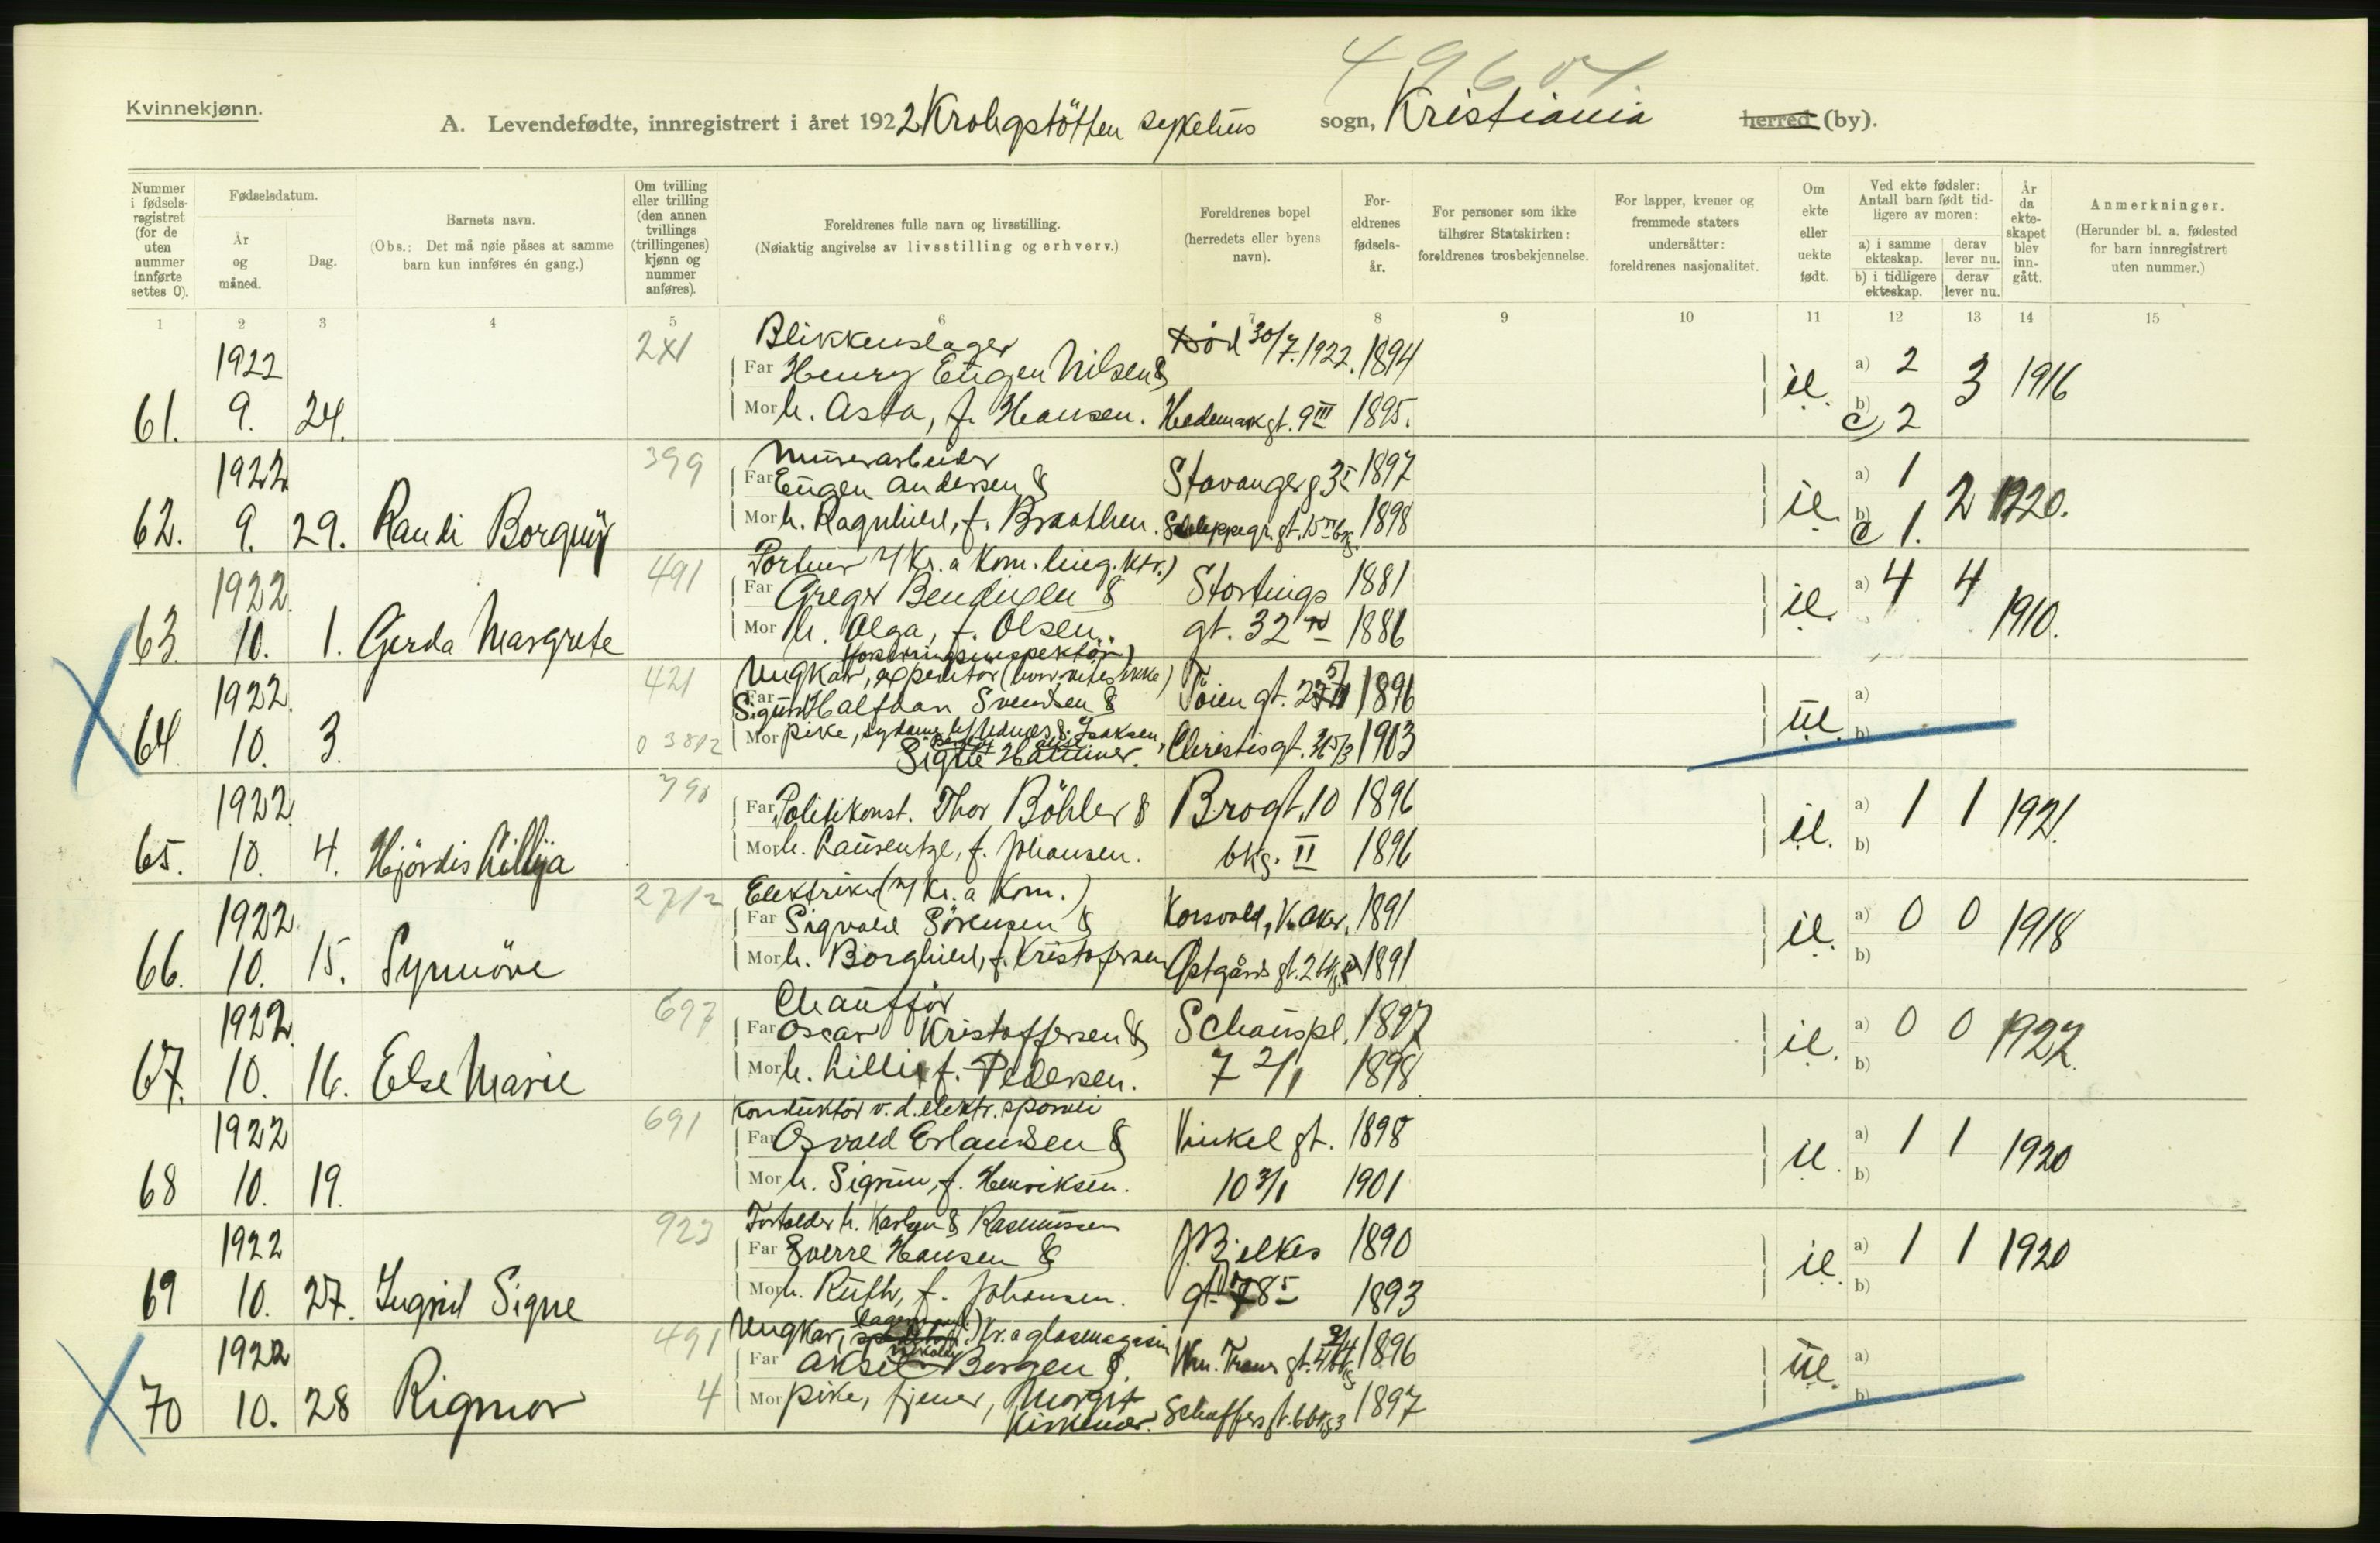 49601
Kvinnekjønn.
A. Levendefødte, innregistrert i året 1922 Krohgstötten sykehus sogn, Kristiania herred (by).
Nummer i fødselsregistret (for de uten nummer innførte settes 0).
Fødselsdatum.
År og måned.
Dag.
Barnets navn.
(Obs.: Det må nøie påses at samme barn kun innføres én gang.)
Om tvilling eller trilling (den annen tvillings (trillingenes) kjønn og nummer anføres).
Foreldrenes fulle navn og livsstilling.
(Nøiaktig angivelse av livsstilling og erhverv.)
Foreldrenes bopel (herredets eller byens navn).
Foreldrenes fødselsår.
For personer som ikke tilhører Statskirken: foreldrenes trosbekjennelse.
For lapper, kvener og fremmede staters undersåtter: foreldrenes nasjonalitet.
Om ekte eller uekte født.
Ved ekte fødsler: Antall barn født tidligere av moren:
a) i samme ekteskap. derav lever nu.
b) i tidligere ekteskap. derav lever nu.
År da ekteskapet blev inngått.
Anmerkninger.
(Herunder bl. a. fødested for barn innregistrert uten nummer.)
1 2 3 4 5 6 7 8 9 10 11 12 13 14 15
241 Blikkenslager Död 30/7.1922.
1922 Far Henry Eugen Nilsen & 1894 a) 2 3 1916
61. 9. 24. Mor h. Asta, f. Hansen. Hedemark gt. 9 III 1895. ie. b) c) 2
399 Murerarbeider
1922 Far Eugen Andersen & Stavanger g 3 I 1897 a) 1 2 1920.
62. 9. 29. Randi Borgny Mor h. Ragnhild, f. Braathen. Schleppegr. gt. 15 1898 ie. b) c 1.
491 Portner
1922. Far Greger Bendixen & Stortings 1881 a) 4 4
63 10. 1. Gerda Margrete Mor h. Olga, f. Olsen. gt. 32 1886 ie. 1910.
421 Ungkar,
1922. Far Sigurd Halfdan Svendsen & Töien gt. 1896 a)
64 10. 3. 0 3812 Mor pike, Isaksen, Christies gt. 1903 ue. b)
Signe
790
1922. Far Politikonst. Thor Böhler & Brogt. 10 1896 a) 1 1 1921.
65. 10. 4. Hjördis Lillija Mor h. Laurentze, f. Johansen. bkg. II 1896 ie. b)
2712 Elektriker (v/ Kr.a Kom.)
1922. Far Sigvald Sörensen & Korsvold, V. Aker. 1891 a) 0 0 1918
66. 10. 15. Synnöve Mor h. Borghild, f. Kristofersen Östgårds gt. 2 1891 ie. b)
697 Chaufför
1922. Far Oscar Kristoffersen & Schouspl. 1897 a) 0 0 1922.
67. 10. 16. Else Marie Mor h. Lilli f. Pedersen. 7 2/1 1898 ie. b)
691 Konduktör v. d. elektr. sporvei
1922 Far Osvald Erlandsen & Vinkel gt. 1898 a) 1 1 1920
68 10. 19. Mor h. Sigrun, f. Henriksen. 10 3/1 1901 ie. b)
923 Forholder h. Karlsen & Rasmussen
1922 Far Sverre Hansen & J. Bjelkes 1890 a) 1 1 1920
69 10. 27. Ingrid Signe Mor h. Ruth, f. Johansen. gt. 1893 ie. b)
491 Ungkar, Kr.a glasmagasin
1922 Far Aksel Borgen &. Wm. Thranes gt. 1896 a)
70 10. 28 Rigmor 4 Mor pike, tjener, Margit Schaffers gt. 1897 ue. b)